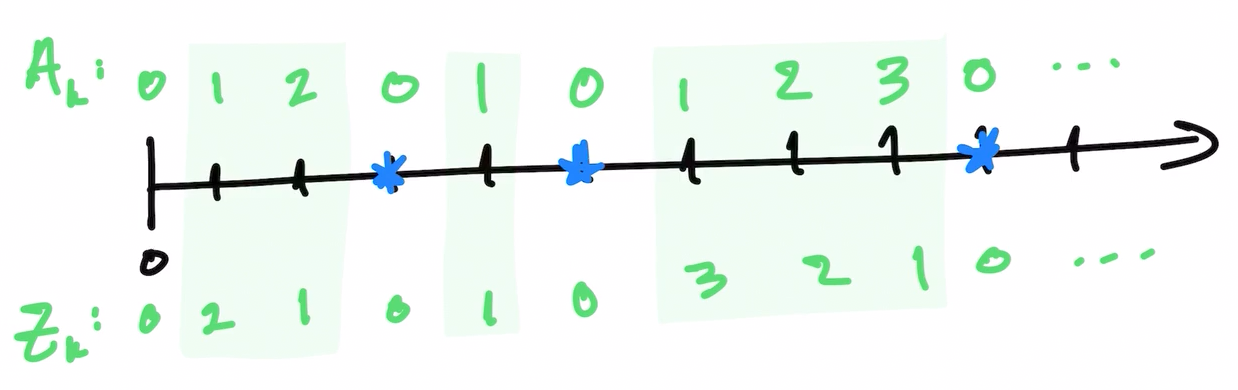 A_k: 0 1 2 0 1 0 1 2 3 0 ...
0
Z_k: 0 2 1 0 1 0 3 2 1 0 ...